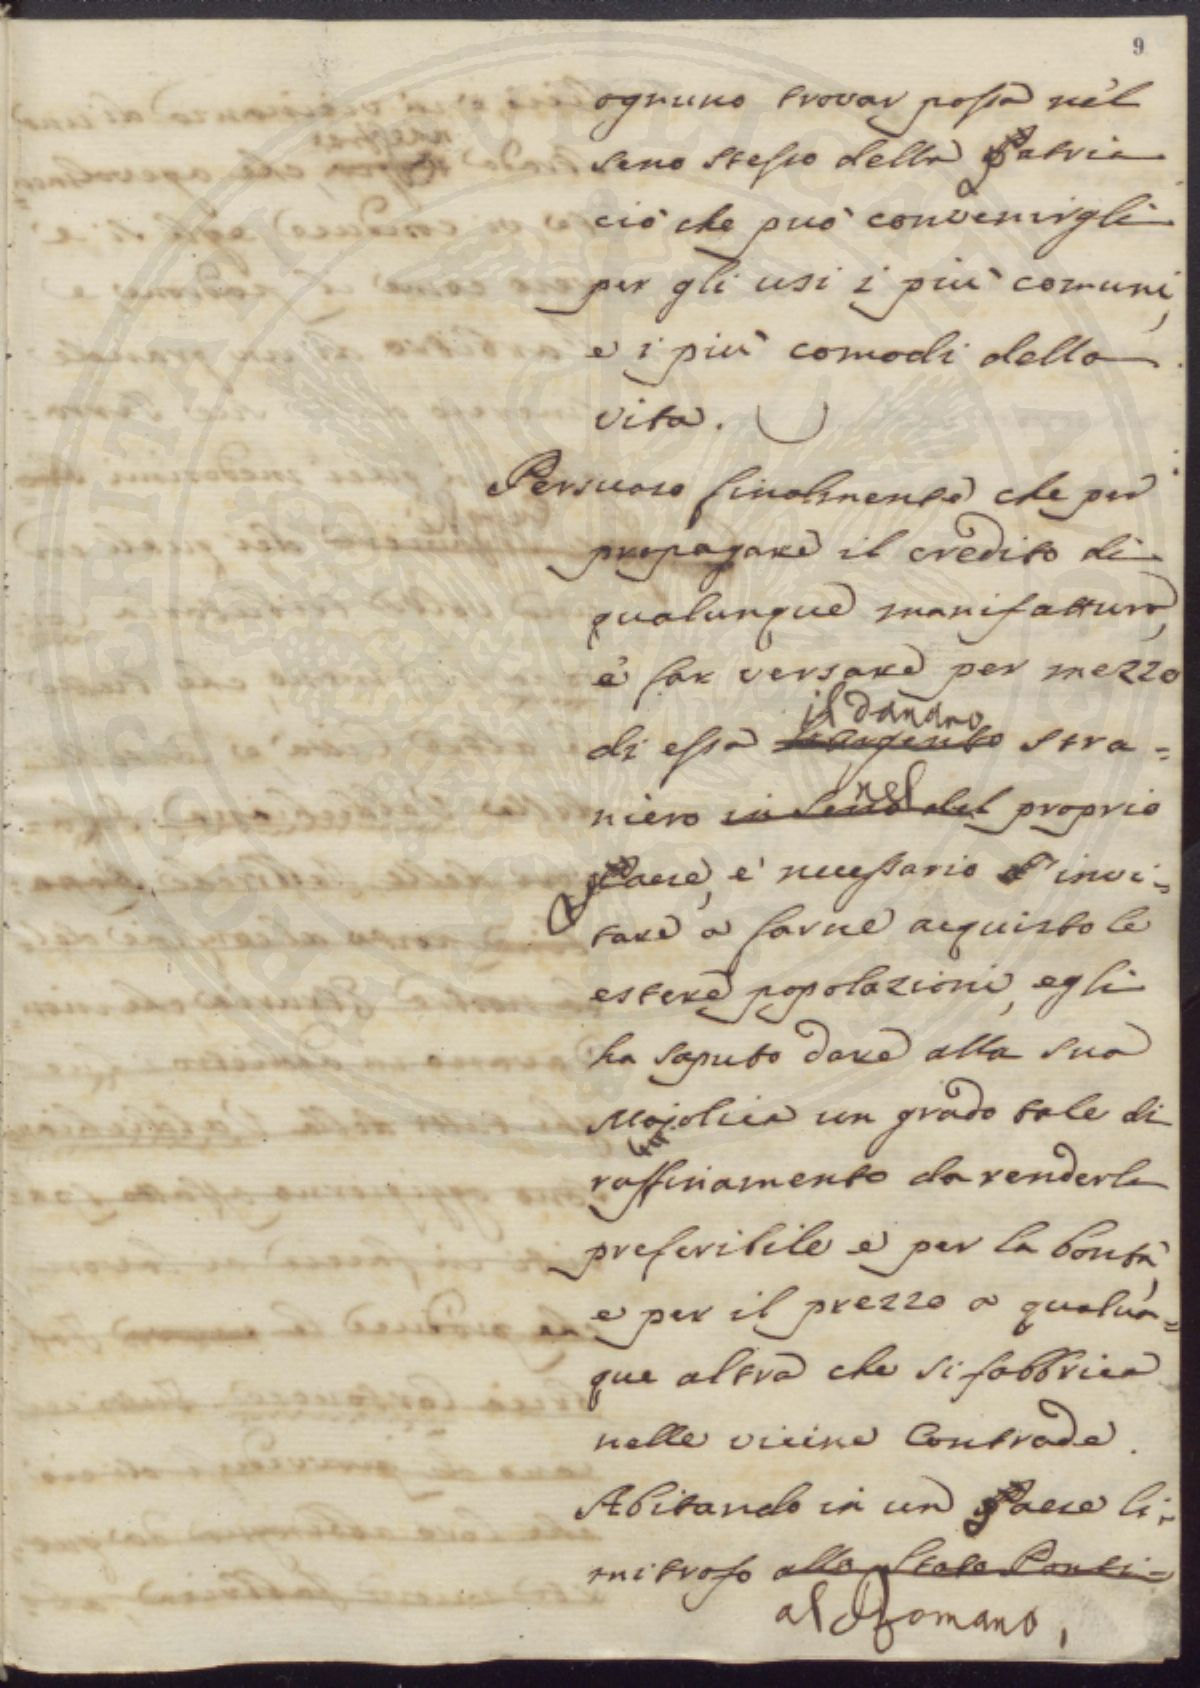 9
ognuno trovar possa nel
seno stesso della Patria
ciò che può convenirgli
per gli usi i più comuni,
e i più comodi della
vita.
Persuaso finalmente che per
propagare il credito di
qualunque manifattura,
e far versare per mezzo
il danaro
di essa l'argento stra=
nel
niero in seno del proprio
Paese, è necessario d'invi=
tare a farne acquisto le
estere popolazioni, egli
ha saputo dare alla sua
Majolica un grado tale di
raffinamento da renderla
preferibile e per la bontà,
e per il prezzo a qualun=
que altra che si fabbrica
nelle vicine Contrade.
Abitando in un Paese li=
mitrofo allo Stato Ponti=
al Romano,